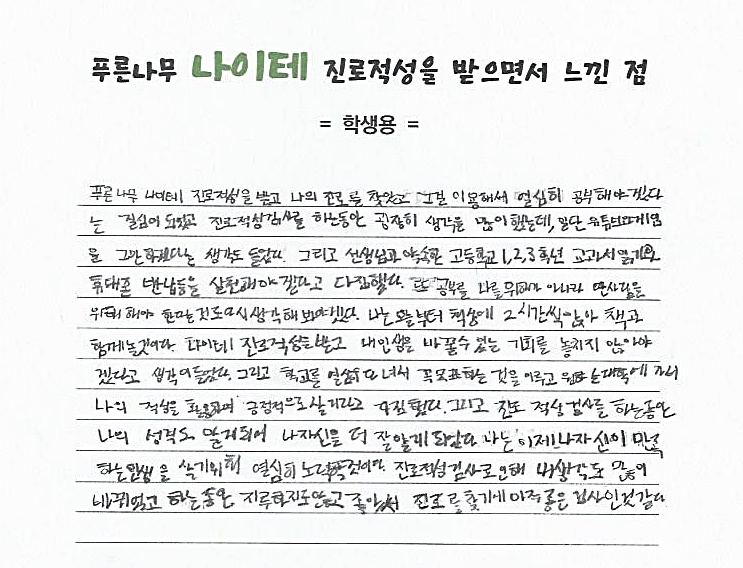 푸른나무 나이테 진로적성을 받으면서 느낀 점
= 학생용 =
푸른나무 나이테 진로적성을 받고 나의 진로를 찾았고 그걸 이용해서 열심히 공부해야겠다
는 결심이 되었고 진로적성검사를 하는동안 굉장히 생각을 많이 했는데, 일단 유튜브와게임
을 그만하겠다는 생각도 들었다. 그리고 선생님과 약속한 고등학교 1,2,3학년 교과서 읽기와
휴대폰 반납등을 실천해야겠다고 다짐했다. 또 공부를 나를위해가 아니라 딴사람을
위해 해야 한다는것도 다시 생각해 봐야겠다. 나는 오늘부터 책상에 2시간씩 앉아 책과
함께 놀것이다. 나이테 진로적성을 받고 내인생을 바꿀수 있는 기회를 놓치지 않아야
겠다고 생각이 들었다. 그리고 학교를 열심히 다녀서 꼭 목표하는 것을 이루고 원하는대학에 가서
나의 적성을 활용하며 긍정적으로 살기라고 다짐했다. 그리고 진로 적성 검사를 하는동안
나의 성격도 알게되어 나자신을 더 잘 알게 되었다. 나는 이제 나자신이 만족
하는 인생을 살기위해 열심히 노력할것이다. 진로적성검사로 인해 내생각도 많이
바뀌었고 하는동안 지루하지도않고 좋아서 진로를 찾기에 아주좋은 검사인것같다